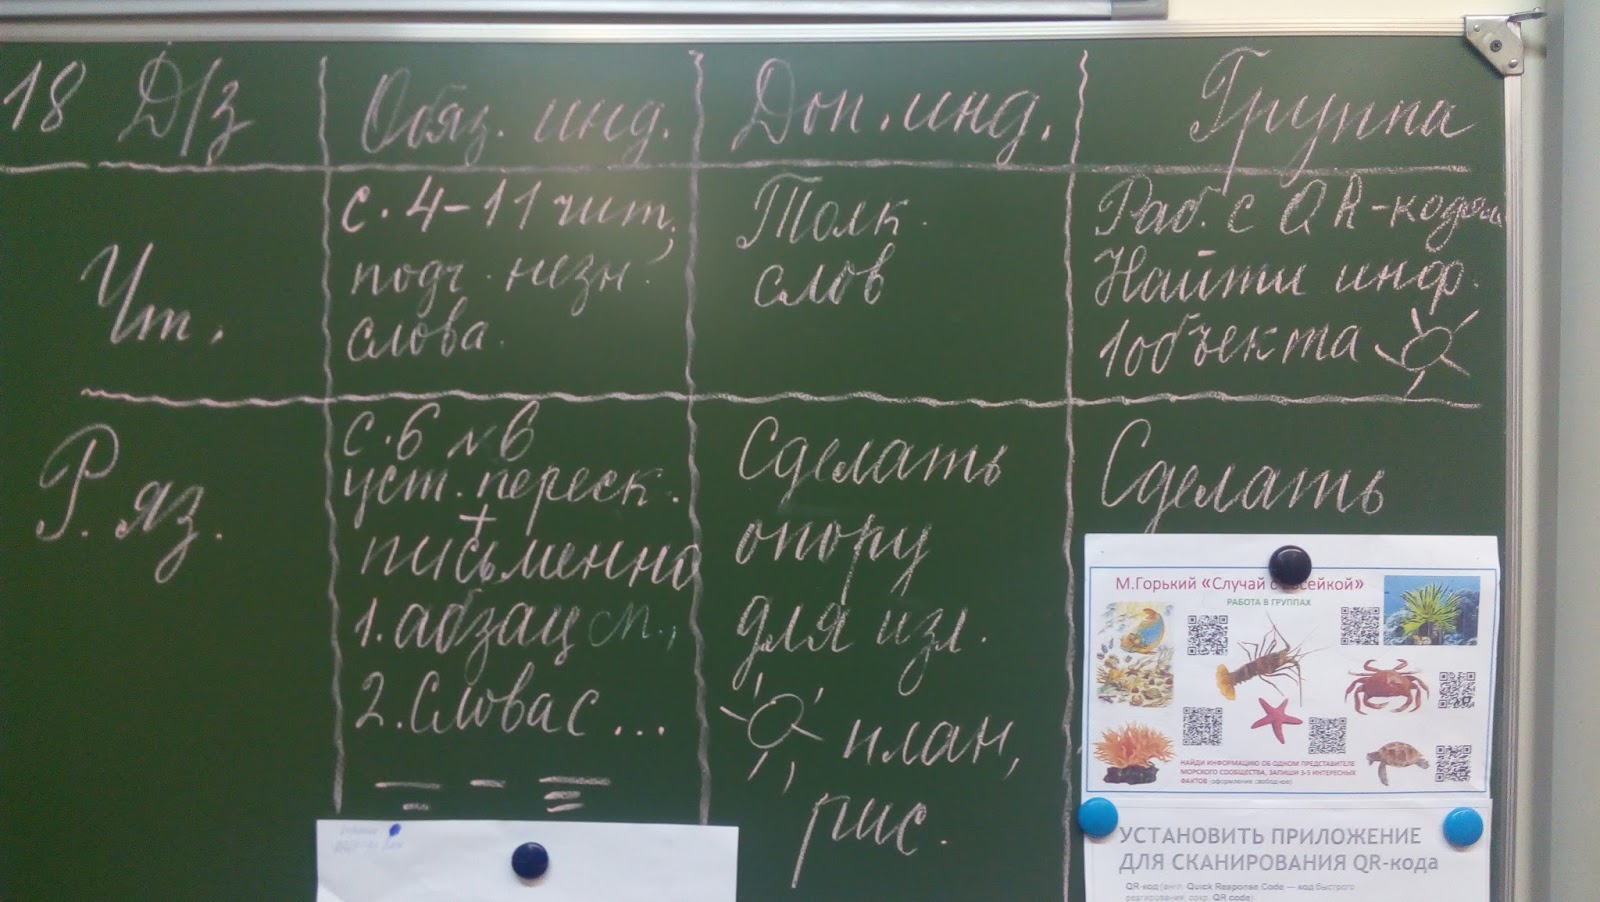 18 Д/з
Обяз. инд.
Доп. инд.
Группа
Чт.
с. 4-11 чит,
подч. незн.
слова.
Толк.
слов
Раб. с QR-кодом
Найти инф.
1 объекта
Р. яз.
с. 6 № 6
уст. переск.
+
письменно
1. абзац
2. Слова с ...
Сделать
опору
для изл.
план,
рис.
Сделать
М.Горький «Случай с Евсейкой»
РАБОТА В ГРУППАХ
НАЙДИ ИНФОРМАЦИЮ ОБ ОДНОМ ПРЕДСТАВИТЕЛЕ
МОРСКОГО СООБЩЕСТВА, ЗАПИШИ 3-5 ИНТЕРЕСНЫХ
ФАКТОВ (оформление свободное)
УСТАНОВИТЬ ПРИЛОЖЕНИЕ
ДЛЯ СКАНИРОВАНИЯ QR-кода
QR-код (англ. Quick Response Code — код быстрого
реагирования; сокр. QR code)